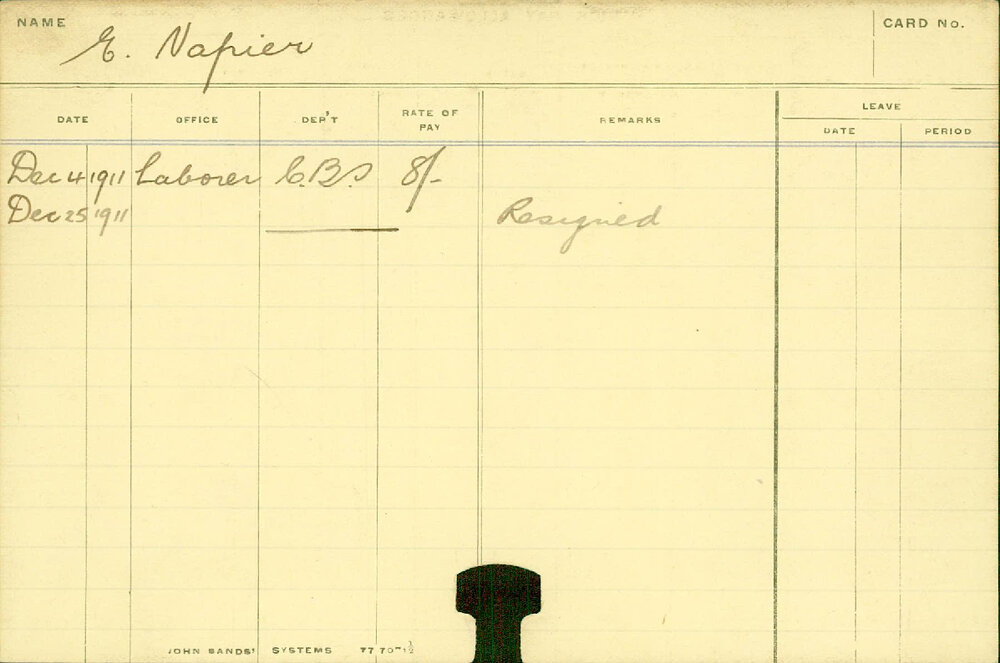 NAME E. Napier CARD No.
DATE OFFICE DEP'T RATE OF PAY REMARKS LEAVE
DATE PERIOD
Dec 4 1911 Laborer C.B.S 8/-
Dec 25 1911 Resigned
JOHN SANDS' SYSTEMS